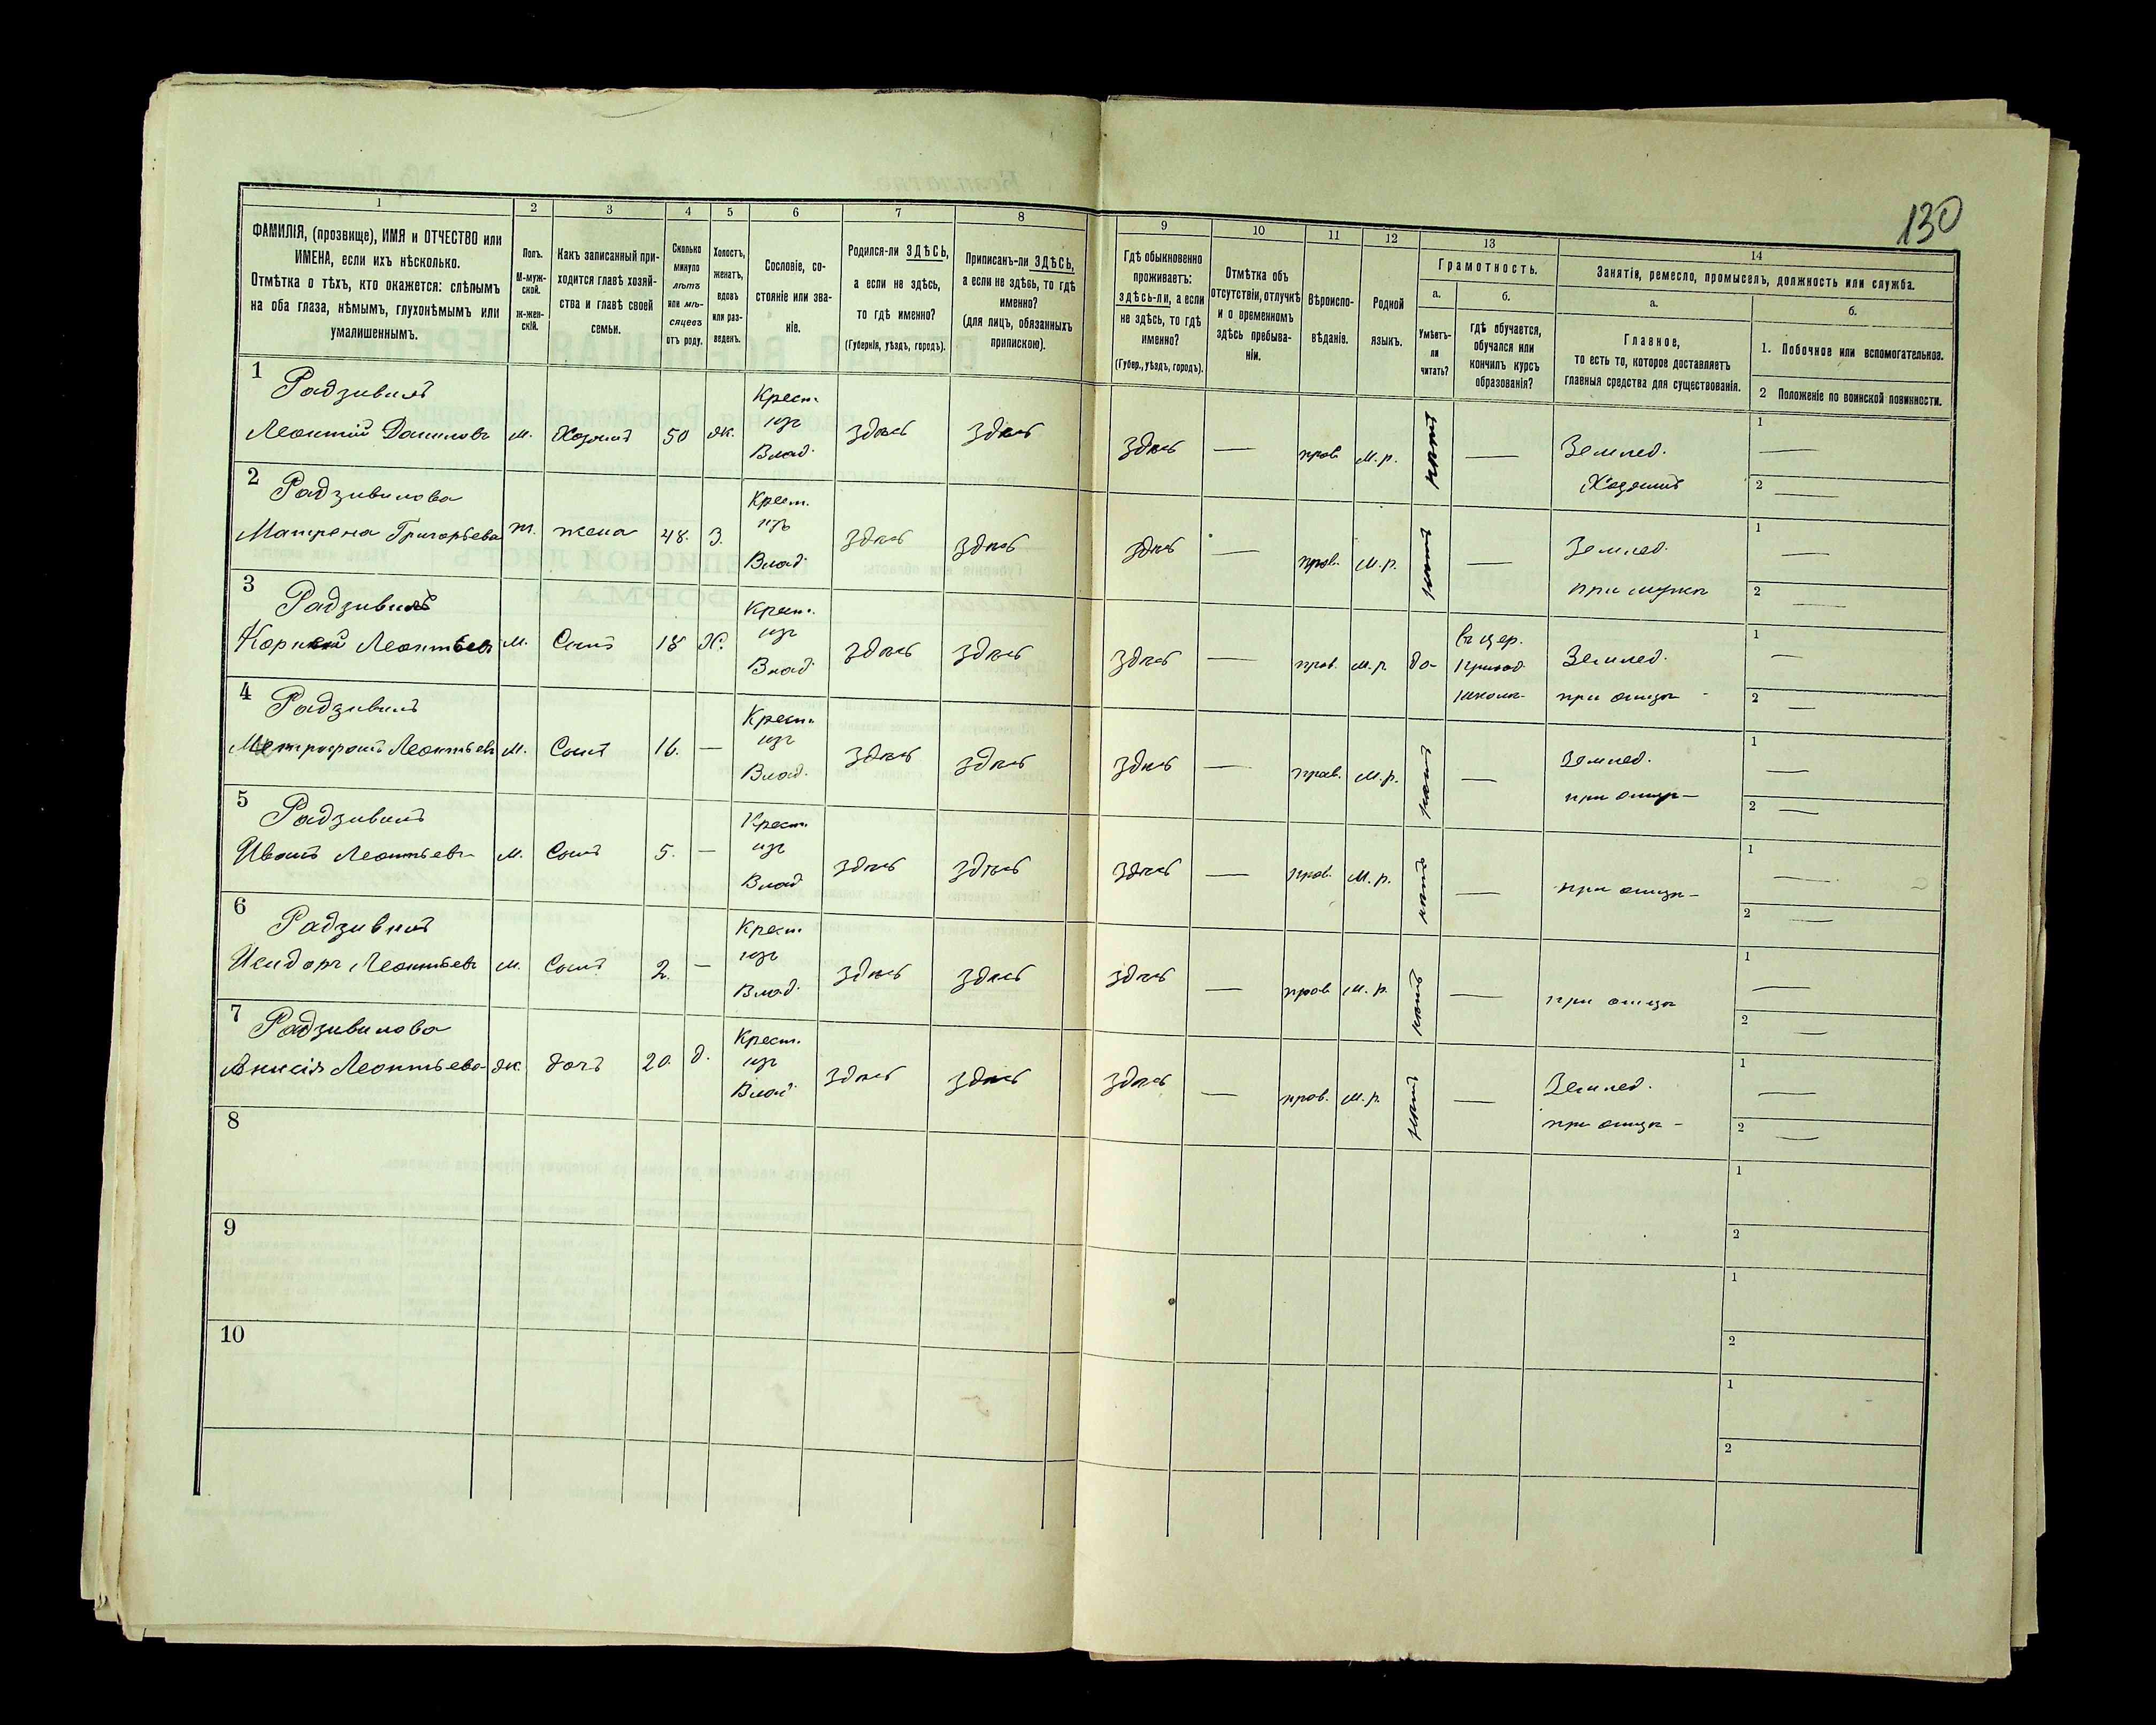 130
1 2 3 4 5 6 7 8 9 10 11 12 13 14
ФАМИЛІЯ, (прозвище), ИМЯ и ОТЧЕСТВО или
ИМЕНА, если ихъ нѣсколько.
Отмѣтка о тѣхъ, кто окажется: слѣпымъ
на оба глаза, нѣмымъ, глухонѣмымъ или
умалишеннымъ.
Полъ.
М-муж-
ской.
ж-жен-
скій.
Какъ записанный при-
ходится главѣ хозяй-
ства и главѣ своей
семьи.
Сколько
минуло
лѣтъ
или мѣ-
сяцевъ
отъ роду.
Холостъ,
женатъ,
вдовъ
или раз-
веденъ.
Сословіе, со-
стояніе или зва-
ніе.
Родился-ли ЗДѢСЬ,
а если не здѣсь,
то гдѣ именно?
(Губернія, уѣздъ, городъ).
Приписанъ-ли ЗДѢСЬ,
а если не здѣсь, то гдѣ
именно?
(для лицъ, обязанныхъ
припискою).
Гдѣ обыкновенно
проживаетъ:
здѣсь-ли, а если
не здѣсь, то гдѣ
именно?
(Губер., уѣздъ, городъ).
Отмѣтка объ
отсутствіи, отлучкѣ
и о временномъ
здѣсь пребыва-
ніи.
Вѣроиспо-
вѣданіе.
Родной
языкъ.
Грамотность.
а.
Умѣетъ-
ли
читать?
б.
гдѣ обучается,
обучался или
кончилъ курсъ
образованія?
Занятія, ремесло, промыселъ, должность или служба.
а.
Главное,
то есть то, которое доставляетъ
главныя средства для существованія.
б.
1. Побочное или вспомогательное.
2 Положеніе по воинской повинности.
1 Радзивилъ
Леонтій Даниловъ м. Хозяинъ 50 ж. Крест. изъ Влад. здѣсь здѣсь здѣсь — прав. м.р. нѣтъ — Землед. Хозяинъ 1 — 2 —
2 Радзивилова
Матрена Григорьева ж. жена 48. З. Крест. изъ Влад. здѣсь здѣсь здѣсь — прав. м.р. нѣтъ — Землед. при мужѣ 1 — 2 —
3 Радзивилъ
Корнѣй Леонтьевъ м. Сынъ 18 Х. Крест. изъ Влад. здѣсь здѣсь здѣсь — прав. м.р. да въ цер. приход. школѣ Землед. при отцѣ 1 — 2 —
4 Радзивилъ
Митрофанъ Леонтьевъ м. Сынъ 16. — Крест. изъ Влад. здѣсь здѣсь здѣсь — прав. м.р. нѣтъ — Землед. при отцѣ 1 — 2 —
5 Радзивилъ
Иванъ Леонтьевъ м. Сынъ 5. — Крест. изъ Влад здѣсь здѣсь здѣсь — прав. м.р. нѣтъ — при отцѣ 1 — 2 —
6 Радзивилъ
Исидоръ Леонтьевъ м. Сынъ 2. — Крест. изъ Влад. здѣсь здѣсь здѣсь — прав м.р. нѣтъ — при отцѣ 1 — 2 —
7 Радзивилова
Анисія Леонтьева ж. дочь 20. д. Крест. изъ Влад здѣсь здѣсь здѣсь — прав. м.р. нѣтъ — Землед. при отцѣ 1 — 2 —
8 1 2
9 1 2
10 1 2